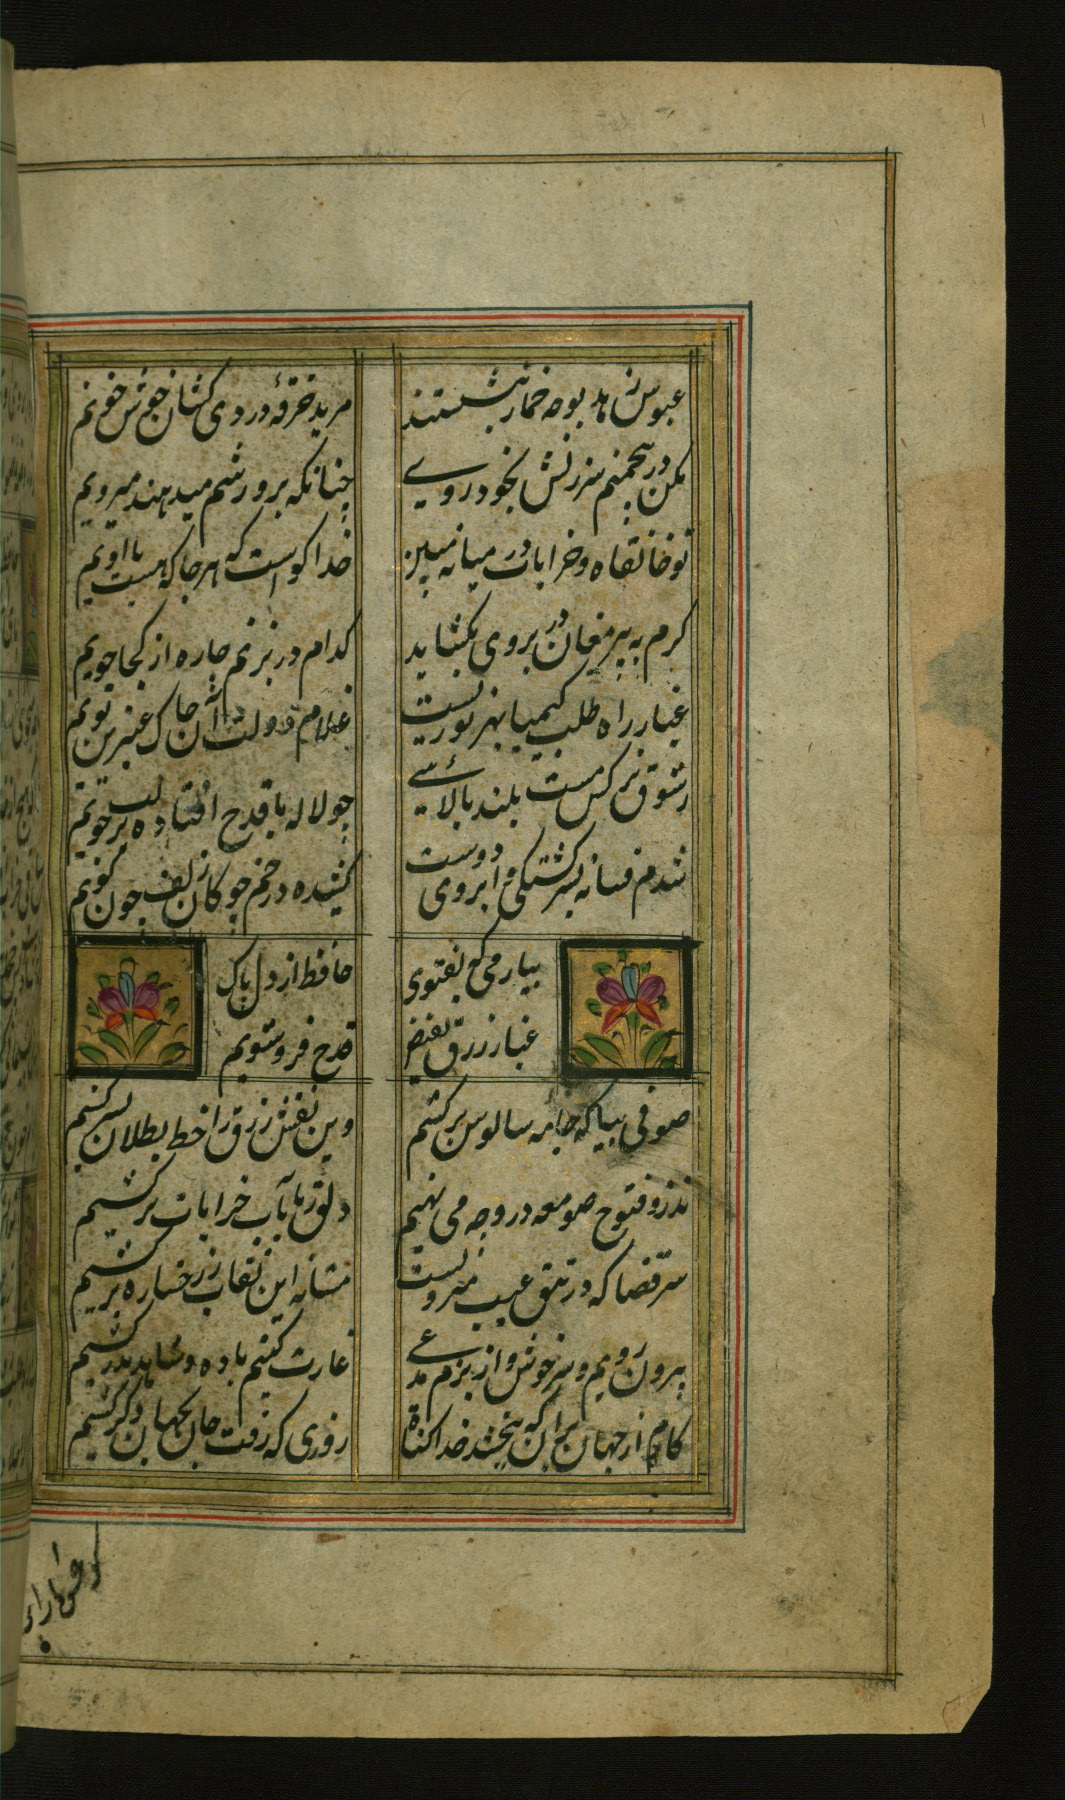 عبوس زهد بوجه خمار ننشستند مرید خرقهٔ دردی کشان خوش خویم
مکن درین چمنم سرزنش بخودرویی چنانکه پرورشم میدهند میرویم
تو خانقاه و خرابات در میانه مبین خدا گواست که هر جا که هست با اویم
گرم به پیر مغان در بروی بگشاید کدام در بزنم چاره از کجا جویم
غبار راه طلب کیمیای بهروزیست غلام دولت آن خاک عنبرین بویم
ز شوق نرگس مست بلند بالائی چو لاله با قدح افتاده بر لب جویم
شدم فسانه بسرگشتگی و ابروی دوست کشیده در خم چوکان زلف چون گویم
بیار می که بفتوی حافظ از دل پاک
غبار زرق بفیض قدح فرو شویم
صوفی بیا که جامه سالوس برکشیم وین نقش زرق را خط بطلان بسر کشیم
نذر و فتوح صومعه در وجه می نهیم دلق ریا بآب خرابات برکشیم
سر قضا که در تتق غیب منزویست مستانه این نقاب ز رخساره برکشیم
بیرون رویم و سرخوش و از بزم مدعی غارت کنیم باده و شاهد ببر کشیم
کام از جهان بران که ببخشد خدا گناه روزی که رفت جان بجهان دگر کشیم